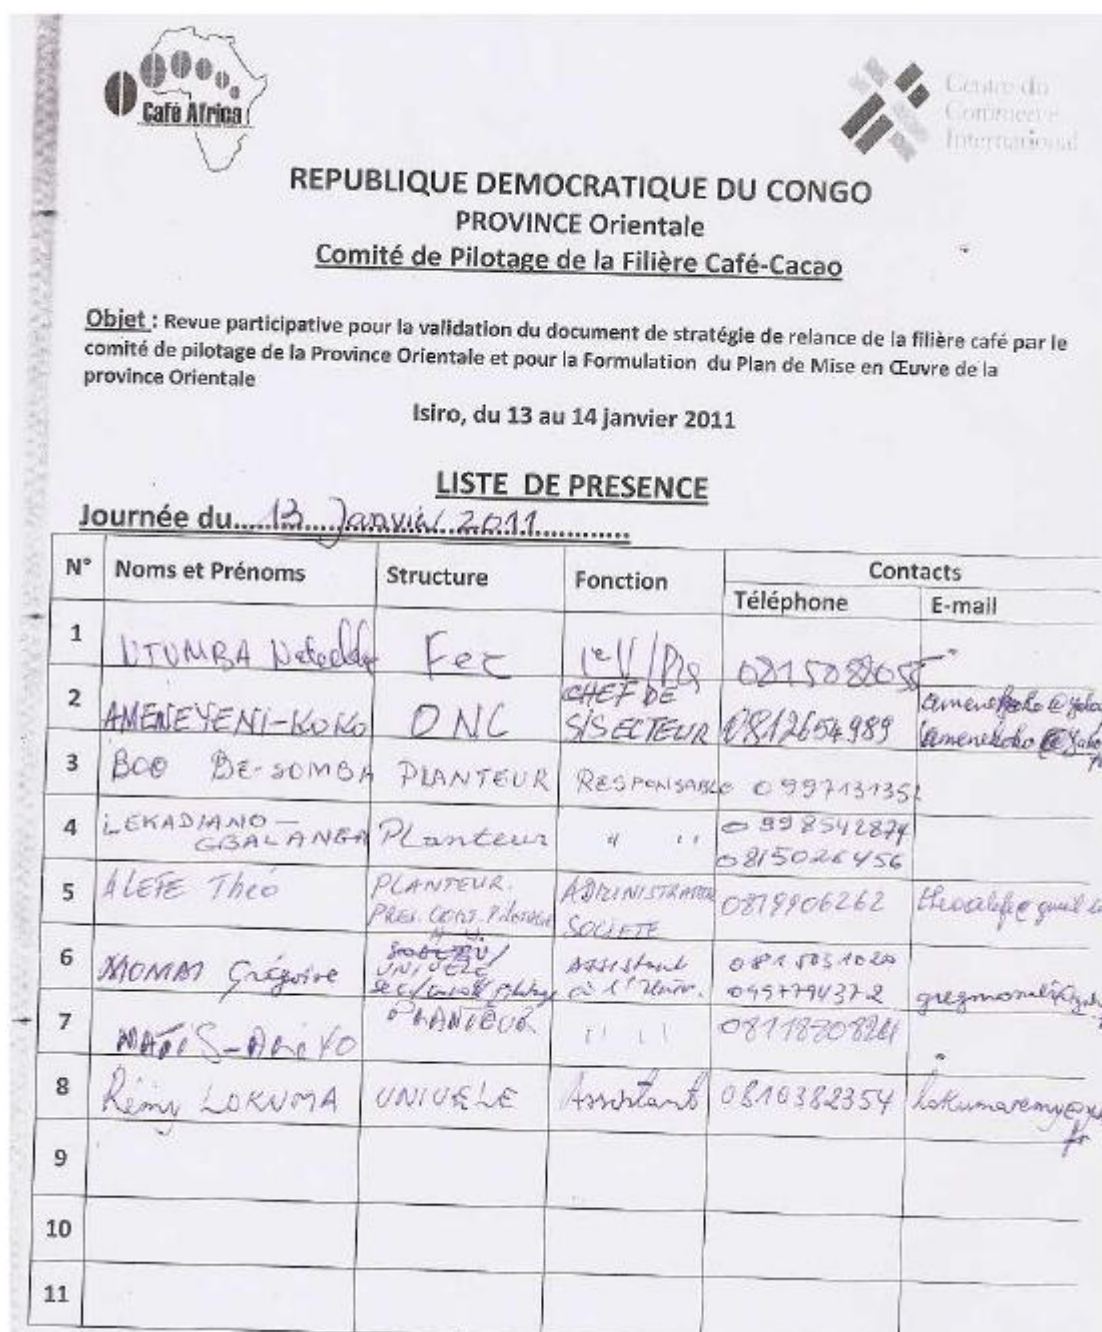 Café Africa
Centre du
Commerce
International
REPUBLIQUE DEMOCRATIQUE DU CONGO
PROVINCE Orientale
Comité de Pilotage de la Filière Café-Cacao
Objet : Revue participative pour la validation du document de stratégie de relance de la filière café par le
comité de pilotage de la Province Orientale et pour la Formulation du Plan de Mise en Œuvre de la
province Orientale
Isiro, du 13 au 14 janvier 2011
LISTE DE PRESENCE
Journée du.....13....Janvier 2011............
N° Noms et Prénoms Structure Fonction Contacts
Téléphone E-mail
1 UTUMBA Fec
2 AMENEYENI-KOKO ONC CHEF DE
S/SECTEUR 0812654989
3 BOO DE-SOMBA PLANTEUR RESPONSABLE 0997131352
4 LEKADIANO-
GBALANGA Planteur " " 0998542874
0815026456
5 ALEFE Théo PLANTEUR. ADMINISTRATEUR 0819906262
SOCIETE
6 Grégoire UNIUELE Assistant 0815031020
à l'Univ.
7 PLANTEUR " "
8 Rémy LOKUMA UNIUELE Assistant 0810382354
fr
9
10
11